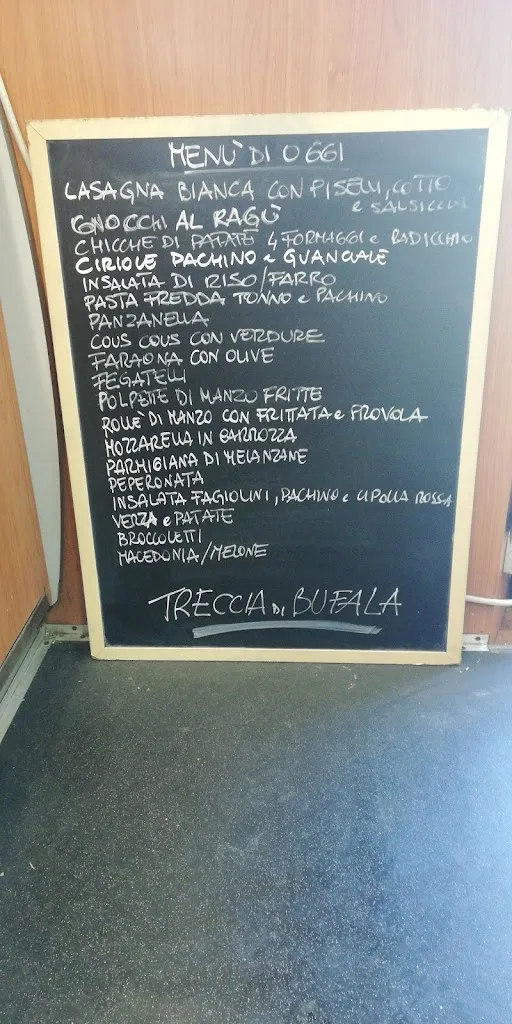 MENÙ DI OGGI
LASAGNA BIANCA CON PISELLI, COTTO
e SALSICCIA
GNOCCHI AL RAGÙ
CHICCHE DI PATATE 4 FORMAGGI e RADICCHIO
CIRIOLE PACHINO e GUANCIALE
INSALATA DI RISO/FARRO
PASTA FREDDA TONNO e PACHINO
PANZANELLA
COUS COUS CON VERDURE
FARAONA CON OLIVE
FEGATELLI
POLPETTE DI MANZO FRITTE
ROLLÈ DI MANZO CON FRITTATA e PROVOLA
MOZZARELLA IN CARROZZA
PARMIGIANA DI MELANZANE
PEPERONATA
INSALATA FAGIOLINI, PACHINO e CIPOLLA ROSSA
VERZA e PATATE
BROCCOLETTI
MACEDONIA/MELONE
TRECCIA DI BUFALA